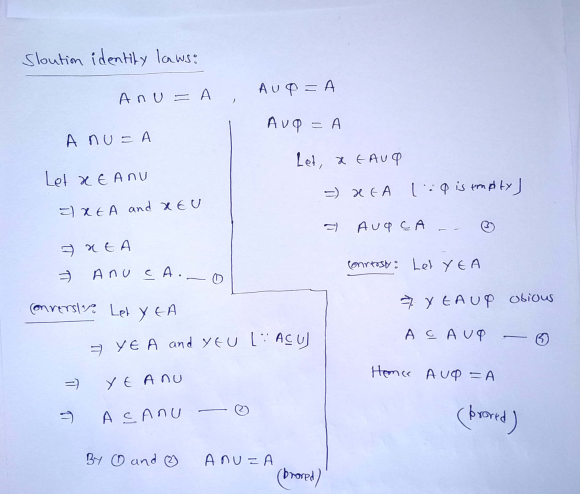 Sloution identity laws:
A ∩ U = A , A ∪ φ = A
A ∩ U = A
Let x ∈ A ∩ U
⇒ x ∈ A and x ∈ U
⇒ x ∈ A
⇒ A ∩ U ⊆ A. — ①
Conversly: Let y ∈ A
⇒ y ∈ A and y ∈ U [∵ A ⊆ U]
⇒ y ∈ A ∩ U
⇒ A ⊆ A ∩ U — ②
By ① and ② A ∩ U = A
(proved)
A ∪ φ = A
Let, x ∈ A ∪ φ
⇒ x ∈ A [∵ φ is empty]
⇒ A ∪ φ ⊆ A -- ②
Let y ∈ A
⇒ y ∈ A ∪ φ obious
A ⊆ A ∪ φ —
Hence A ∪ φ = A
(proved)